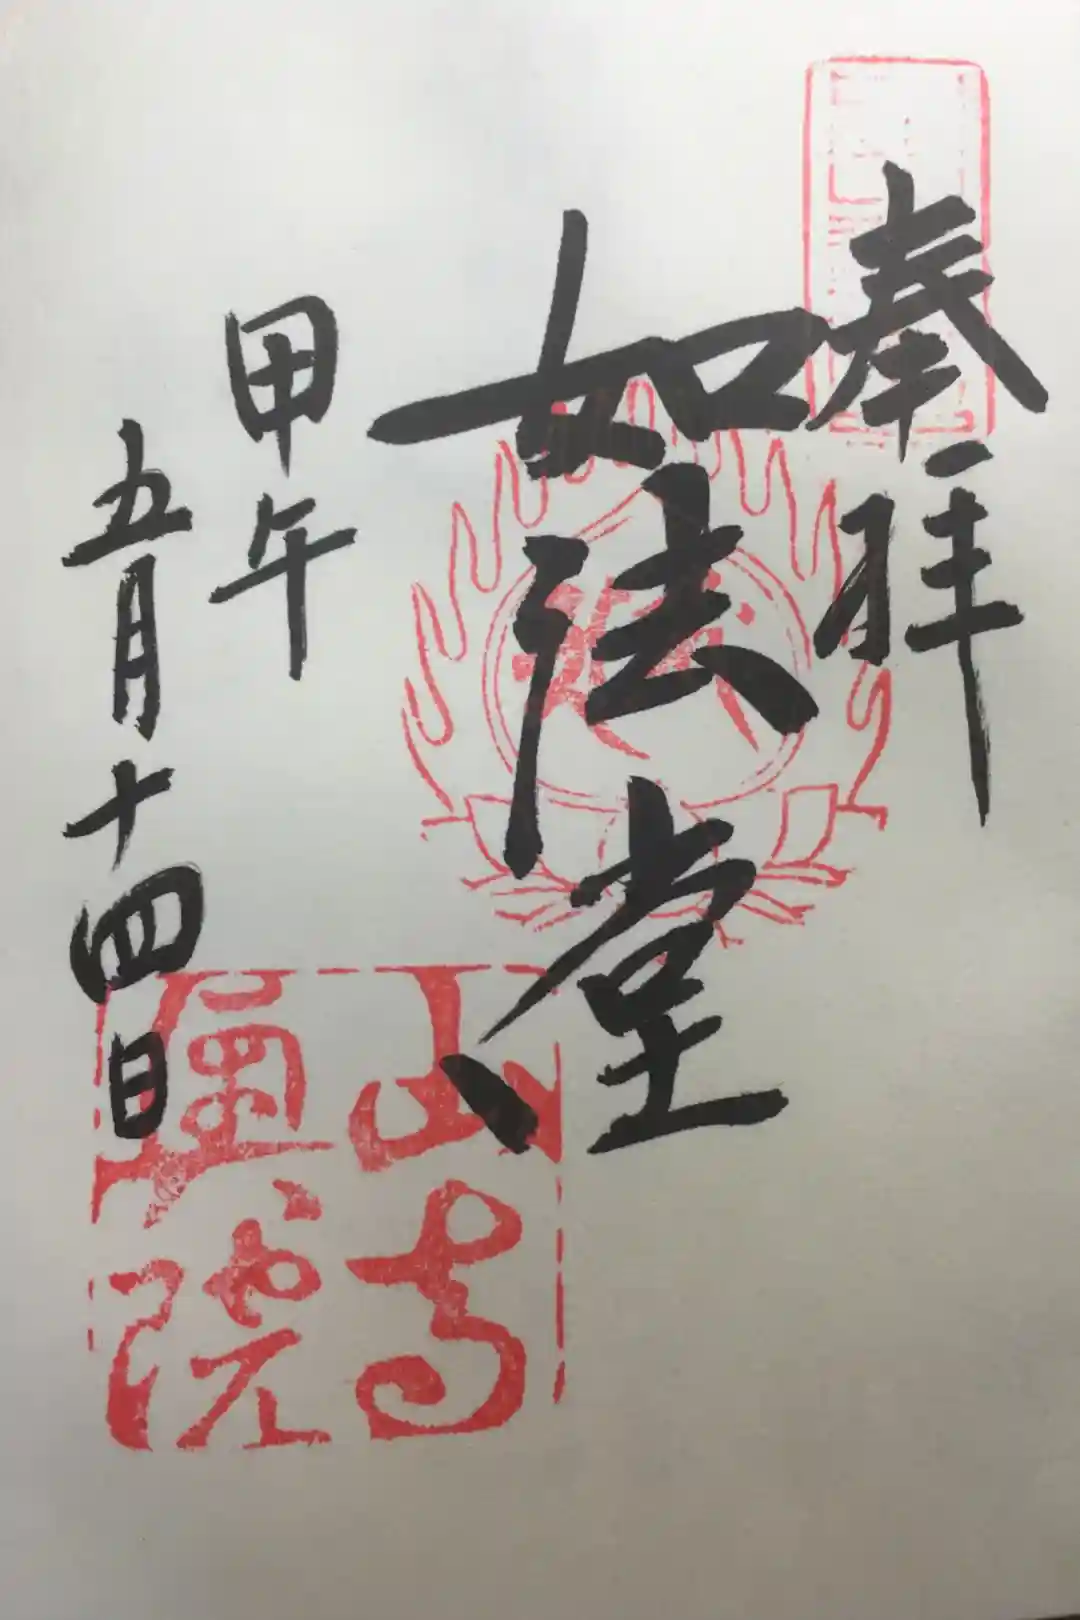 奉拝
如法堂
甲午
五月十四日
山寺